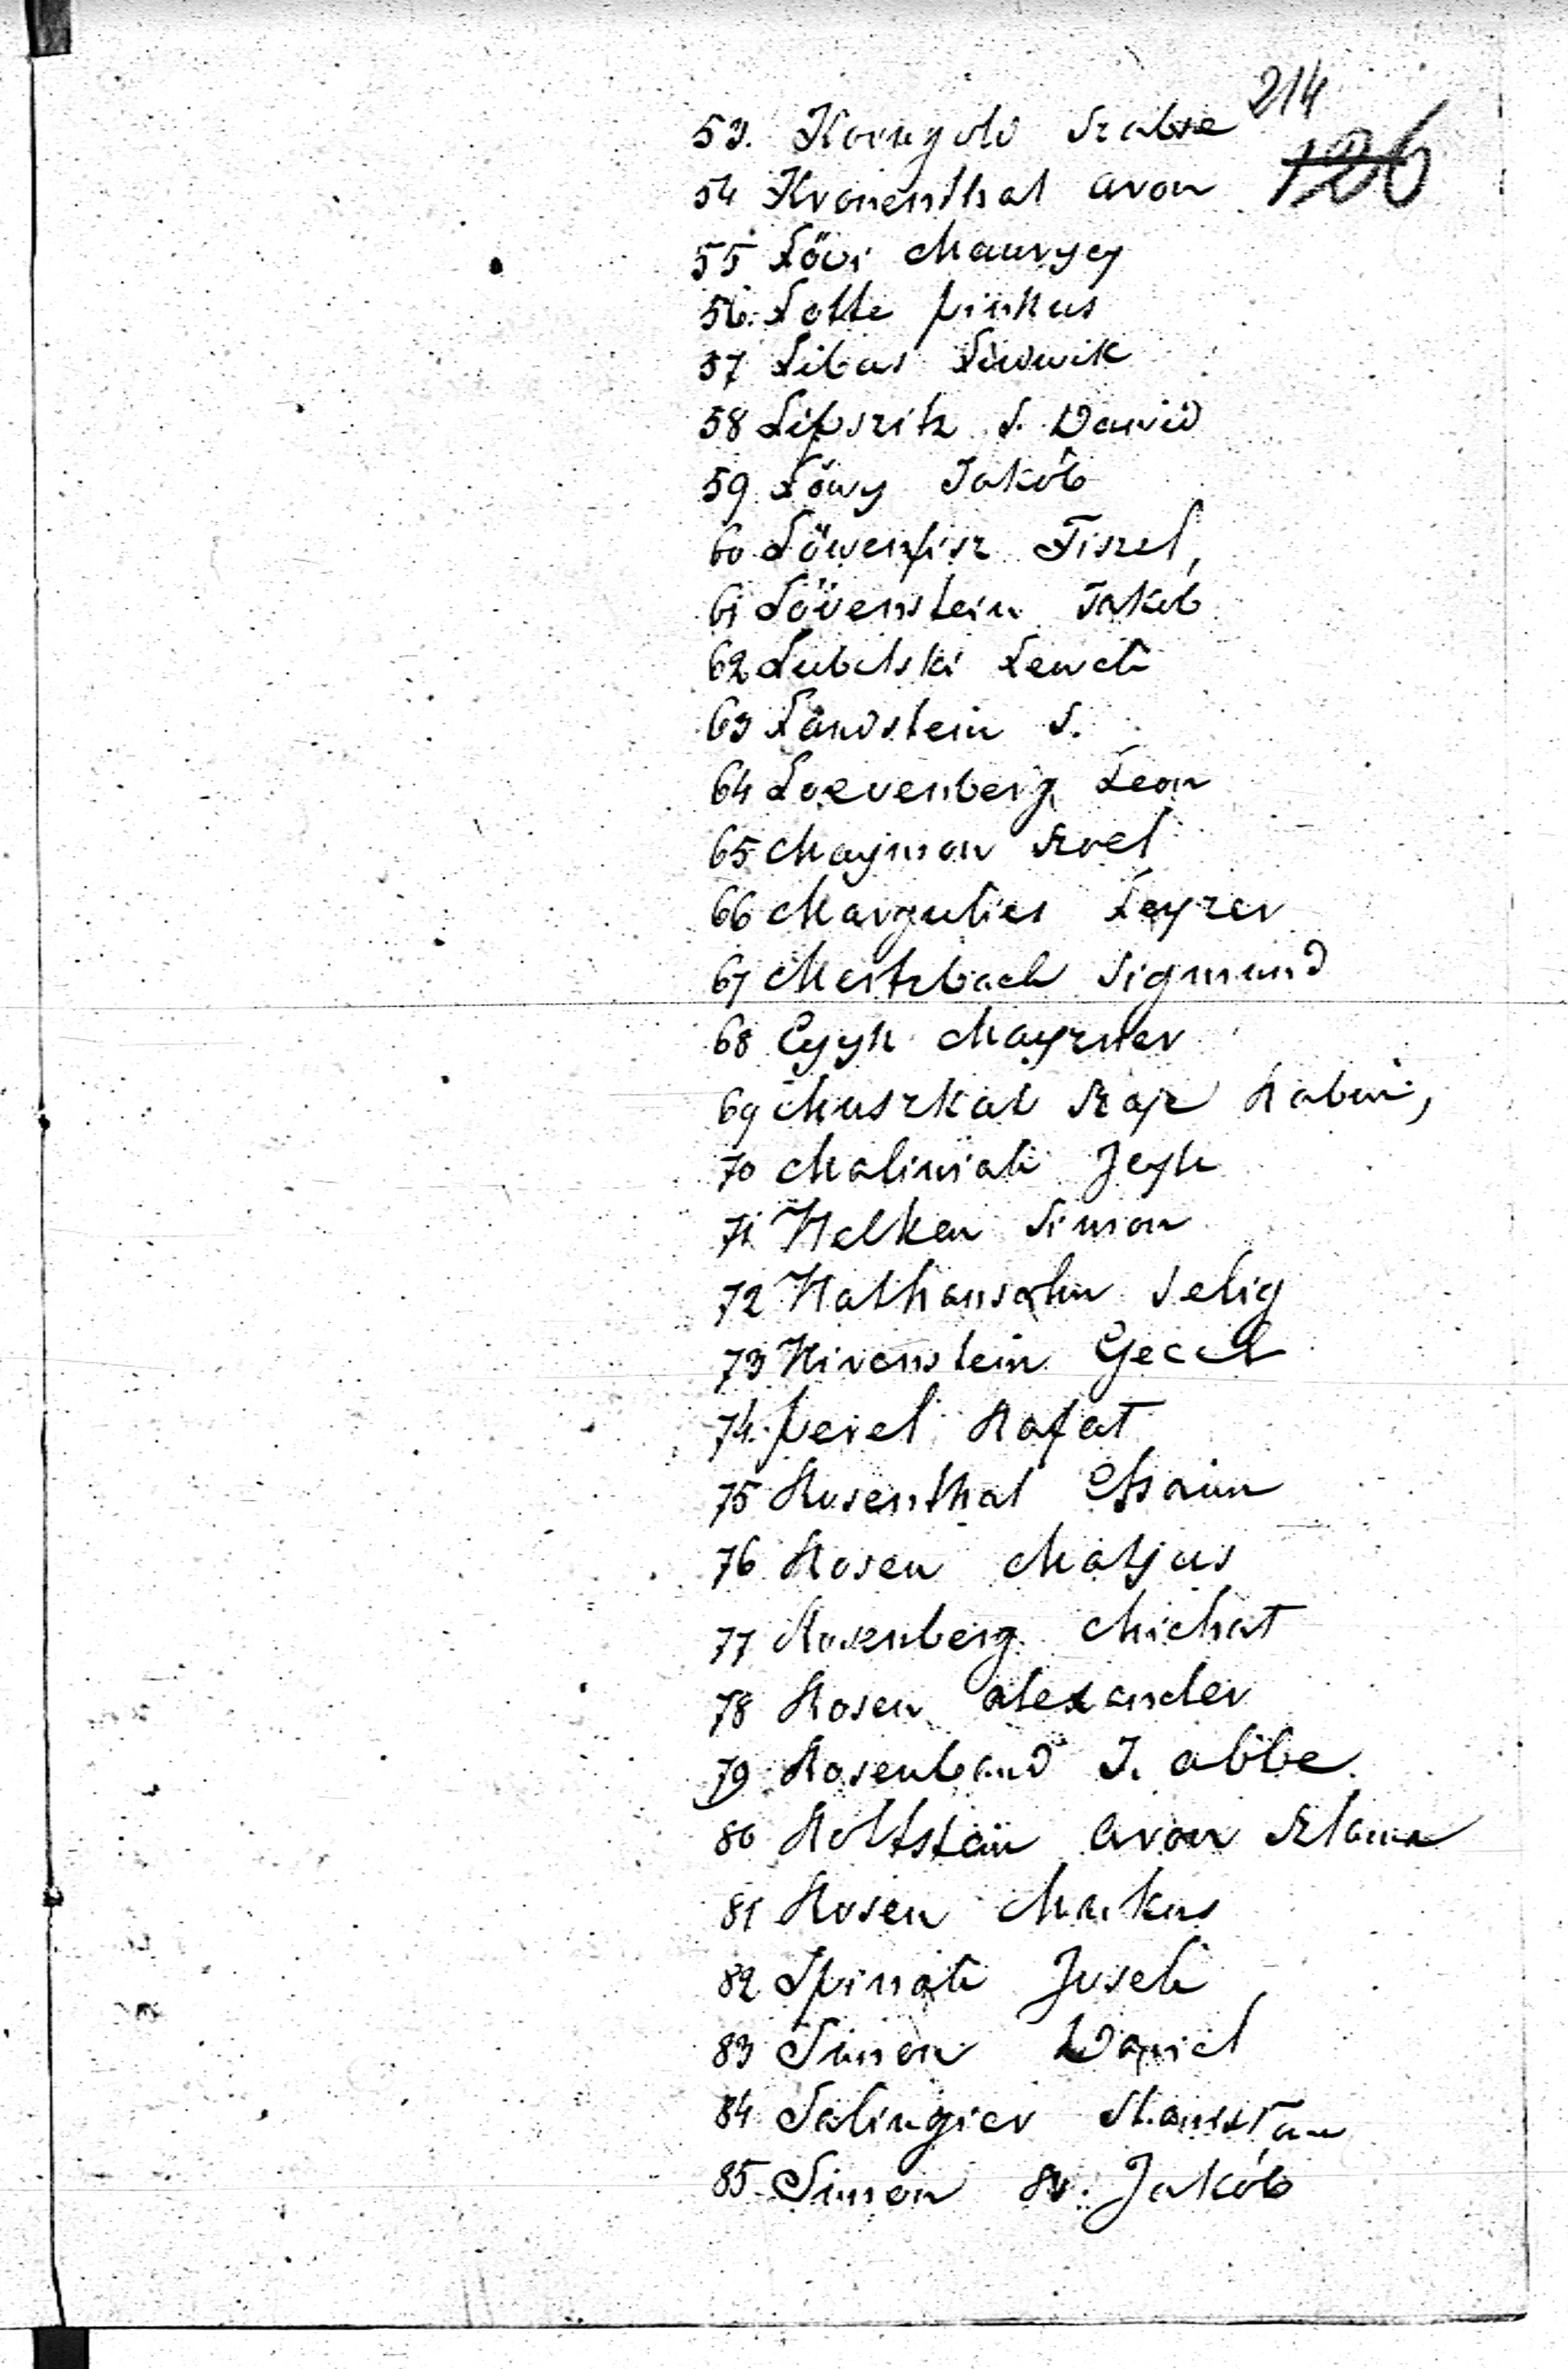 214
126
53. Korngold Szabse
54 Kronenthal Aron
55 Lövi Maurycy
56. Lotte Pinkus
57 Libas Ludwik
58 Lipszitz S. Dawid
59 Löwy Jakób
60 Löwenfisz Fiszel,
61 Lövenstein Jakob
62 Lubelski Lewek
63 Landstein S.
64 Loevenberg Leon
65 Mayman Szoel
66 Margulies Leyzer
67 Mertzbach Sigmund
68 Mayzner
69 Muszkat Szaje Rabin,
70 Maliniak Jcyk
71 Nelken Simon
72 Nathansohn Selig
73 Nirenstein Gecel
74. Perel Rafał
75 Rosenthal Chaim
76 Rosen Matjas
77 Rosenberg Michał
78 Rosen Alexander
79 Rosenband J. Abbe
80 Rottstein Aron Szlama
81 Rosen Markus
82 Spinak Josek
83 Simon Daniel
84 Salingier Stanisław
85 Simon Jakób